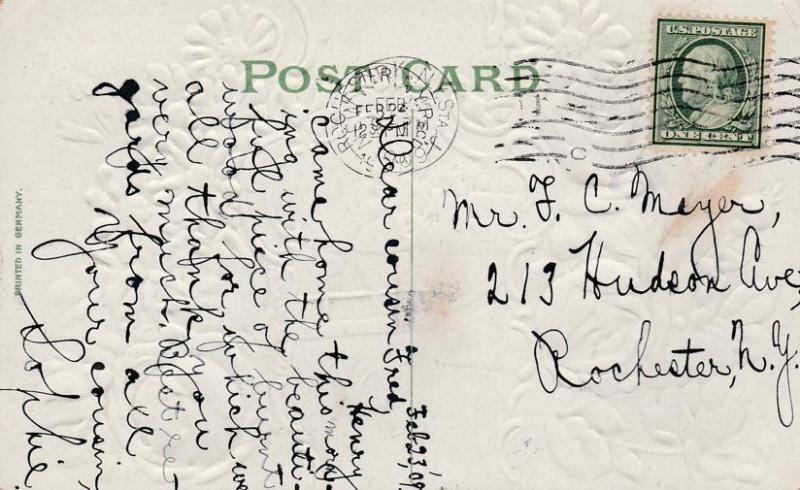 POST CARD
U.S. POSTAGE
ONE CENT
ROCHESTER, N.Y.
FEB
PRINTED IN GERMANY.
Mr. F. C. Meyer,
213 Hudson Ave,
Rochester, N.Y.
Feb 23, '09
Dear cousin Fred,
Henry
came home this morn-
ing with the beauti-
ful piece of burnt
wood for which we
all thank you
very much. Best re-
gards from all
Your cousin,
Sophie.